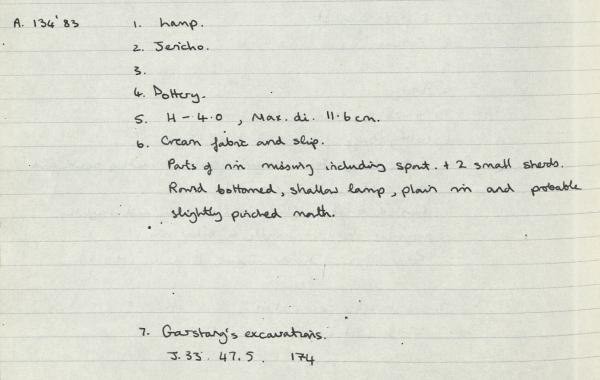 A. 134'83 1. Lamp.
2. Jericho.
3.
4. Pottery.
5. H – 4.0 , Max. di. 11.6 cm.
6. Cream fabric and slip.
Parts of rim missing including spout. + 2 small sherds.
Round bottomed, shallow lamp, plain rim and probable
slightly pinched mouth.
7. Garstang's excavations.
J.33. 47.5. 174